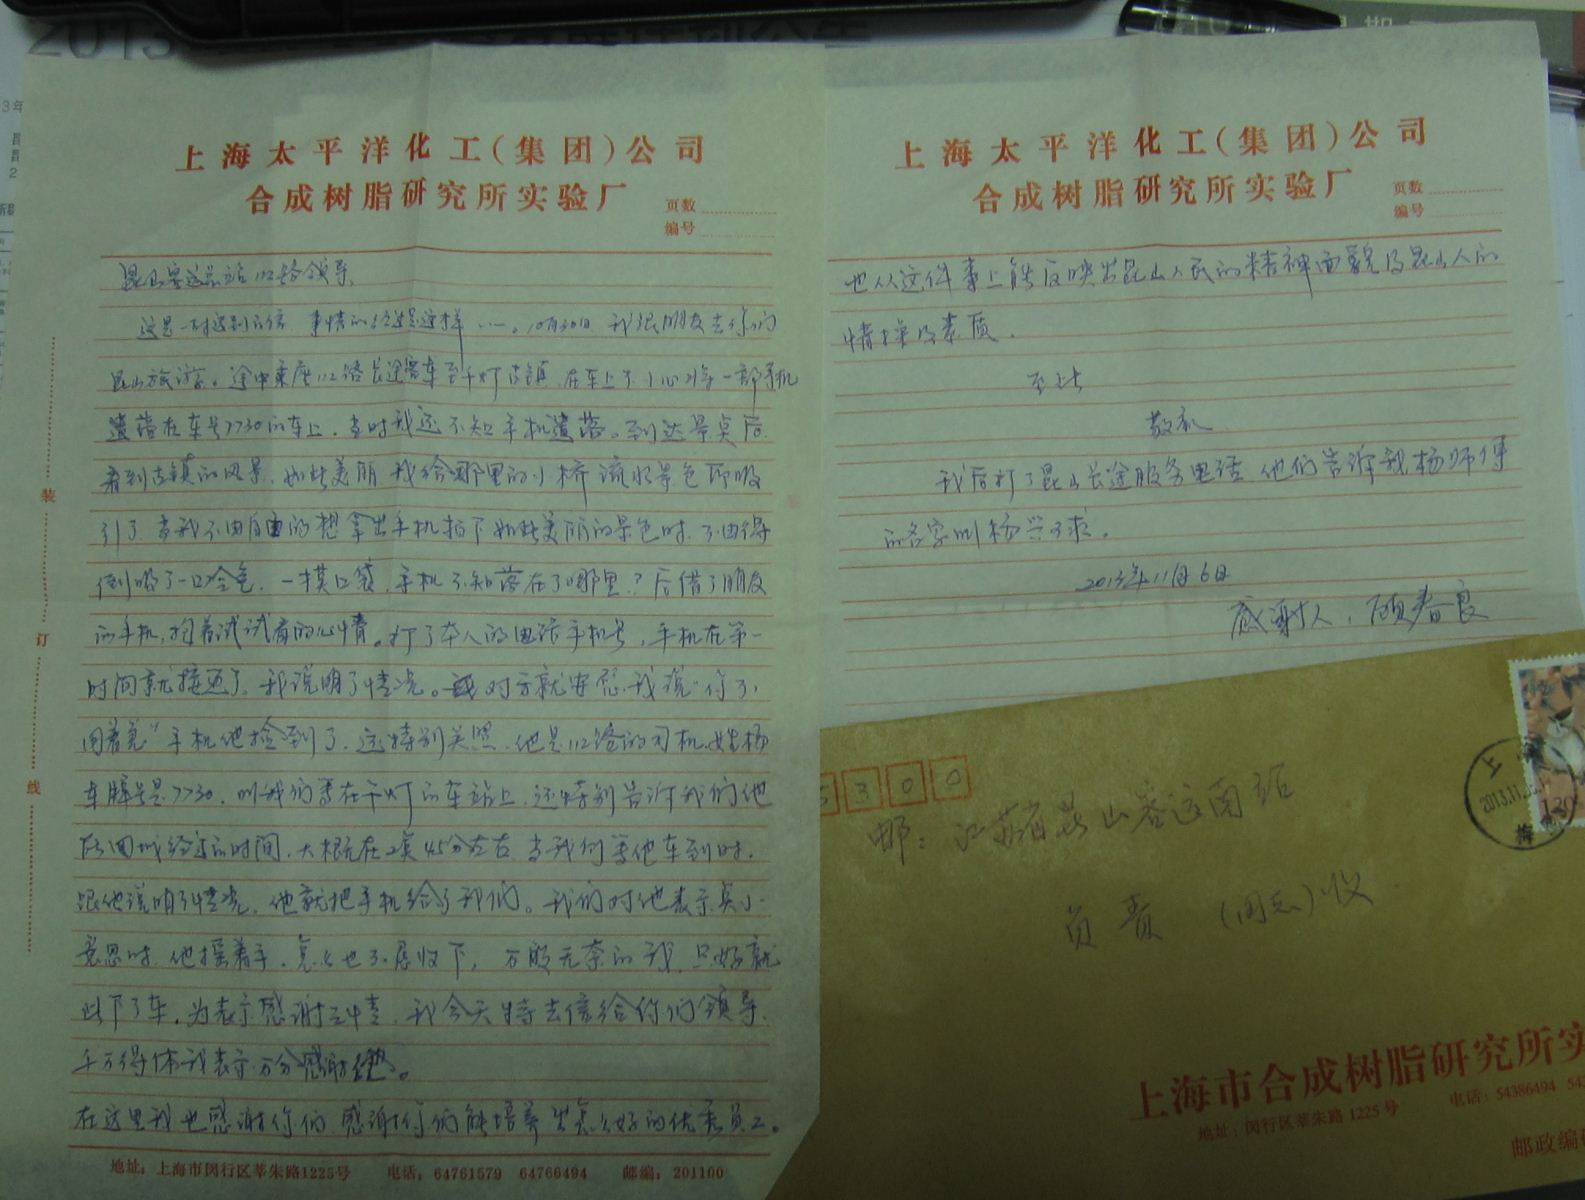 上海太平洋化工(集团)公司
合成树脂研究所实验厂
页数
编号
昆山客运总站112路领导,
这是一封感谢的信 事情的经过是这样……。10月30日 我跟朋友去你们
昆山旅游。途中乘座112路长途客车至千灯古镇.在车上不小心将一部手机
遗落在车号7730的车上.当时我还不知手机遗落。到达景点后
看到古镇的风景.如此美丽 我给那里的小桥流水景色所吸
引了.当我不由自由的想拿出手机拍下如此美丽的景色时.不由得
倒吸了一口冷气.一摸口袋.手机不知落在了哪里?后借了朋友
的手机,抱着试试看的心情。打了本人的电话手机号.手机在第一
时间就接通了.我说明了情况。对方就安慰我说"你不
用着急"手机他捡到了.还特别关照.他是112路的司机.姓杨
车牌号是7730.叫我们等在千灯的车站上.还特别告诉我们他
所回城经过的时间.大概在2点45分左右.当我们等他车到时.
跟他说明了情况.他就把手机给了我们。我们对他表示点小
意思时.他摇着手.怎么也不愿收下.万般无奈的我.只好就
此下了车.为表示感谢之情.我今天特去信给你们领导.
千万得体我表示万分感谢他。
在这里我也感谢你们.感谢你们能培养出怎么好的优秀员工。
地址:上海市闵行区莘朱路1225号 电话:64761579 64766494 邮编:201100
装
订
线
上海太平洋化工(集团)公司
合成树脂研究所实验厂
页数
编号
也从这件事上能反映出昆山人民的精神面貌及昆山人的
情操及素质.
至此
敬礼
我后打了昆山长途服务电话.他们告诉我杨师傅
的名字叫杨兴球。
2013年11月6日
感谢人:顾春良
5300
邮:江苏省昆山客运南站
负责(同志)收
上海
2013.11.
120
上海市合成树脂研究所实
地址:闵行区莘朱路1225号 电话:54386494 54
邮政编